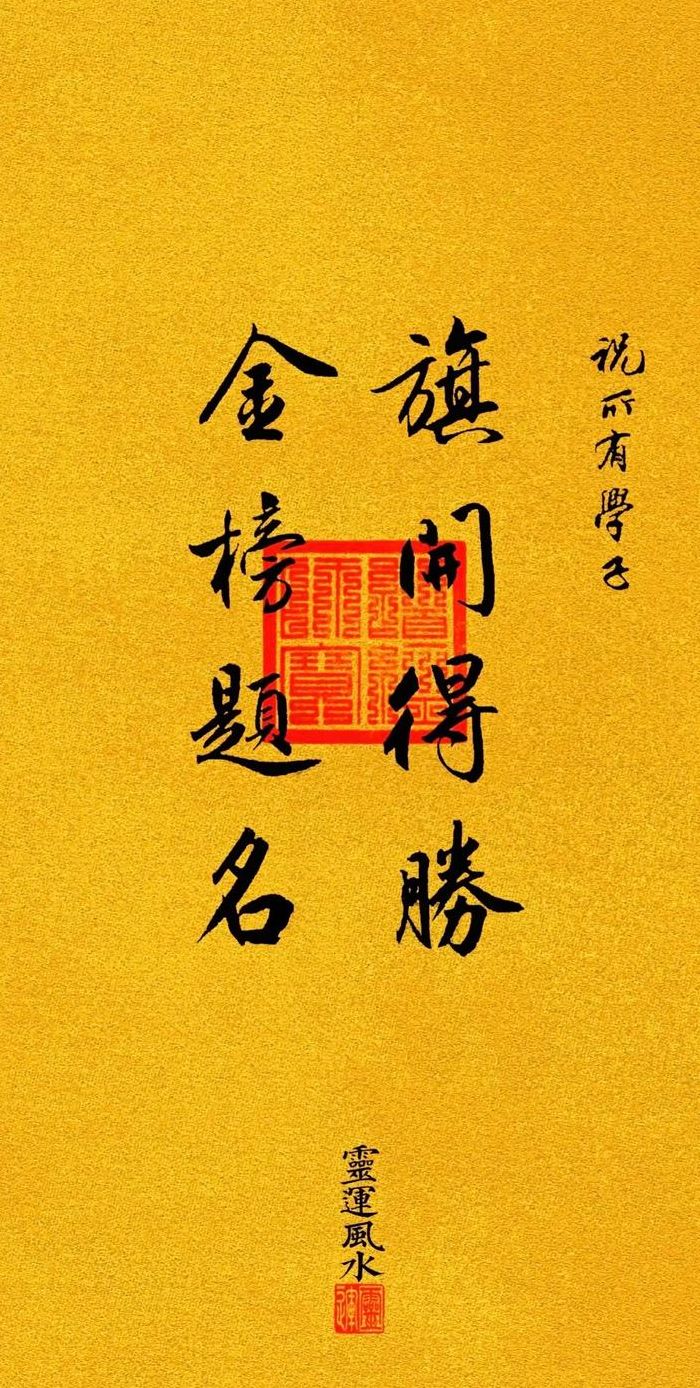 祝所有學子
旗開得勝
金榜題名
靈運風水